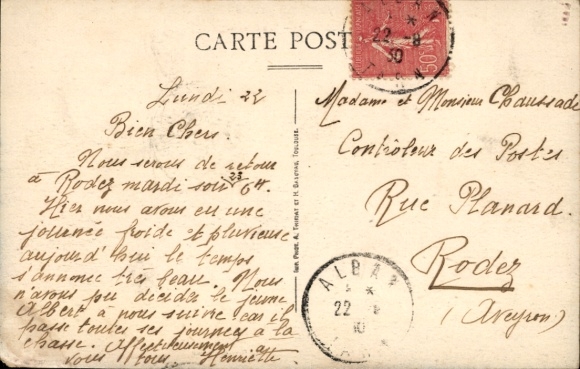 CARTE POST
Lundi 22
Bien Chers.
Nous serons de retour
à Rodez mardi soir 23 6H.
Hier nous avons eu une
journée froide et pluvieuse
aujourd'hui le temps
s'annonce très beau. Nous
n'avons pu décider le jeune
Albert à nous suivre car il
passe toutes ses journées à la
chasse. Affectueusement à
vous tous Henriette
Imp. Phot. A. Thiriat et H. Basuyau, Toulouse.
Madame et Monsieur Chaussade
Contrôleur des Postes
Rue Planard.
Rodez
(Aveyron)
50c
22 -9
30
ALBAN
22 -9
30